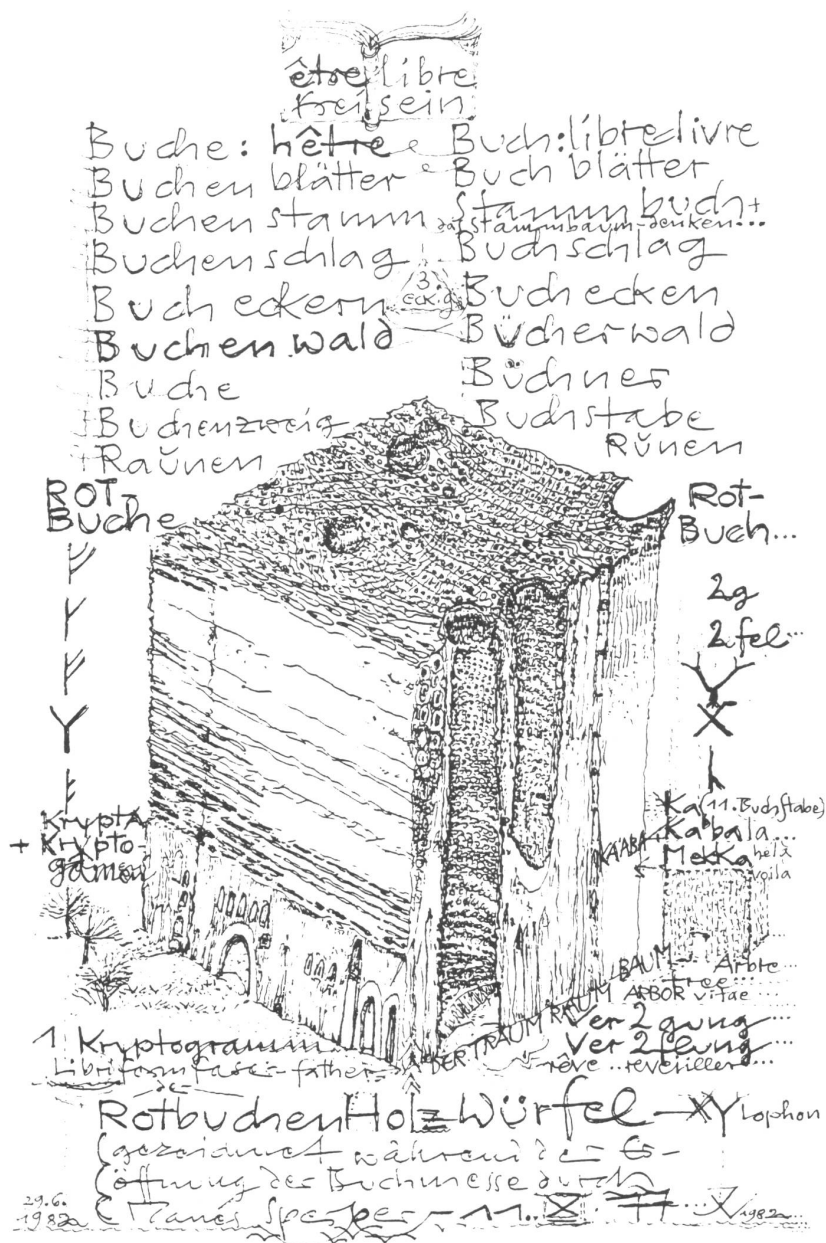 être libre
frei sein
Buche: hêtre
Buchenblätter
Buchenstamm
Buchenschlag
Bucheckern
Buchenwald
Buche
Buchenzweig
Raŭnen
Buch: libre livre
Buchblätter
Stammbuch +
das stammbaum-denken...
Buchschlag
Buchecken
Bücherwald
Büchner
Buchstabe
Rŭnen
3
eckig
ROT-
Buche
Rot-
Buch...
2g
2fel...
Krypta
+ Krypto-
gamen
Ka (11. Buchstabe)
Kabala...
MekKa helà
voila
KAABA
1 Kryptogramm
Libriformfaser - father
DER TRAUM RAUM BAUM
Arbre...
Tree...
ARBOR vitae
Ver2gung...
Ver2flung...
rêve.. réveiller...
RotbuchenHolzWürfel - XYlophon
(gezeichnet während der Er-
öffnung der Buchmesse durch
Manès Sperber - 11. X.
29.6.
1982
1982